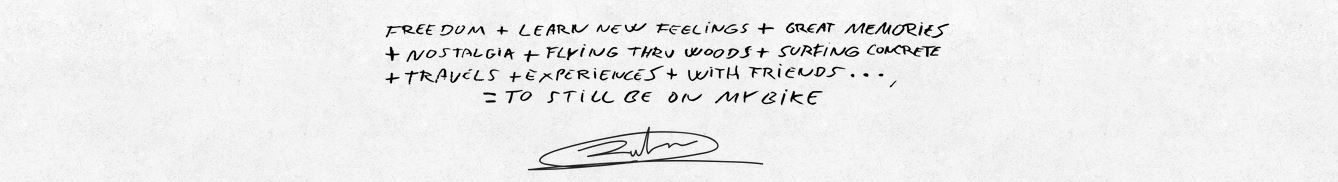 FREEDOM + LEARN NEW FEELINGS + GREAT MEMORIES
+ NOSTALGIA + FLYING THRU WOODS + SURFING CONCRETE
+ TRAVELS + EXPERIENCES + WITH FRIENDS...,
= TO STILL BE ON MY BIKE